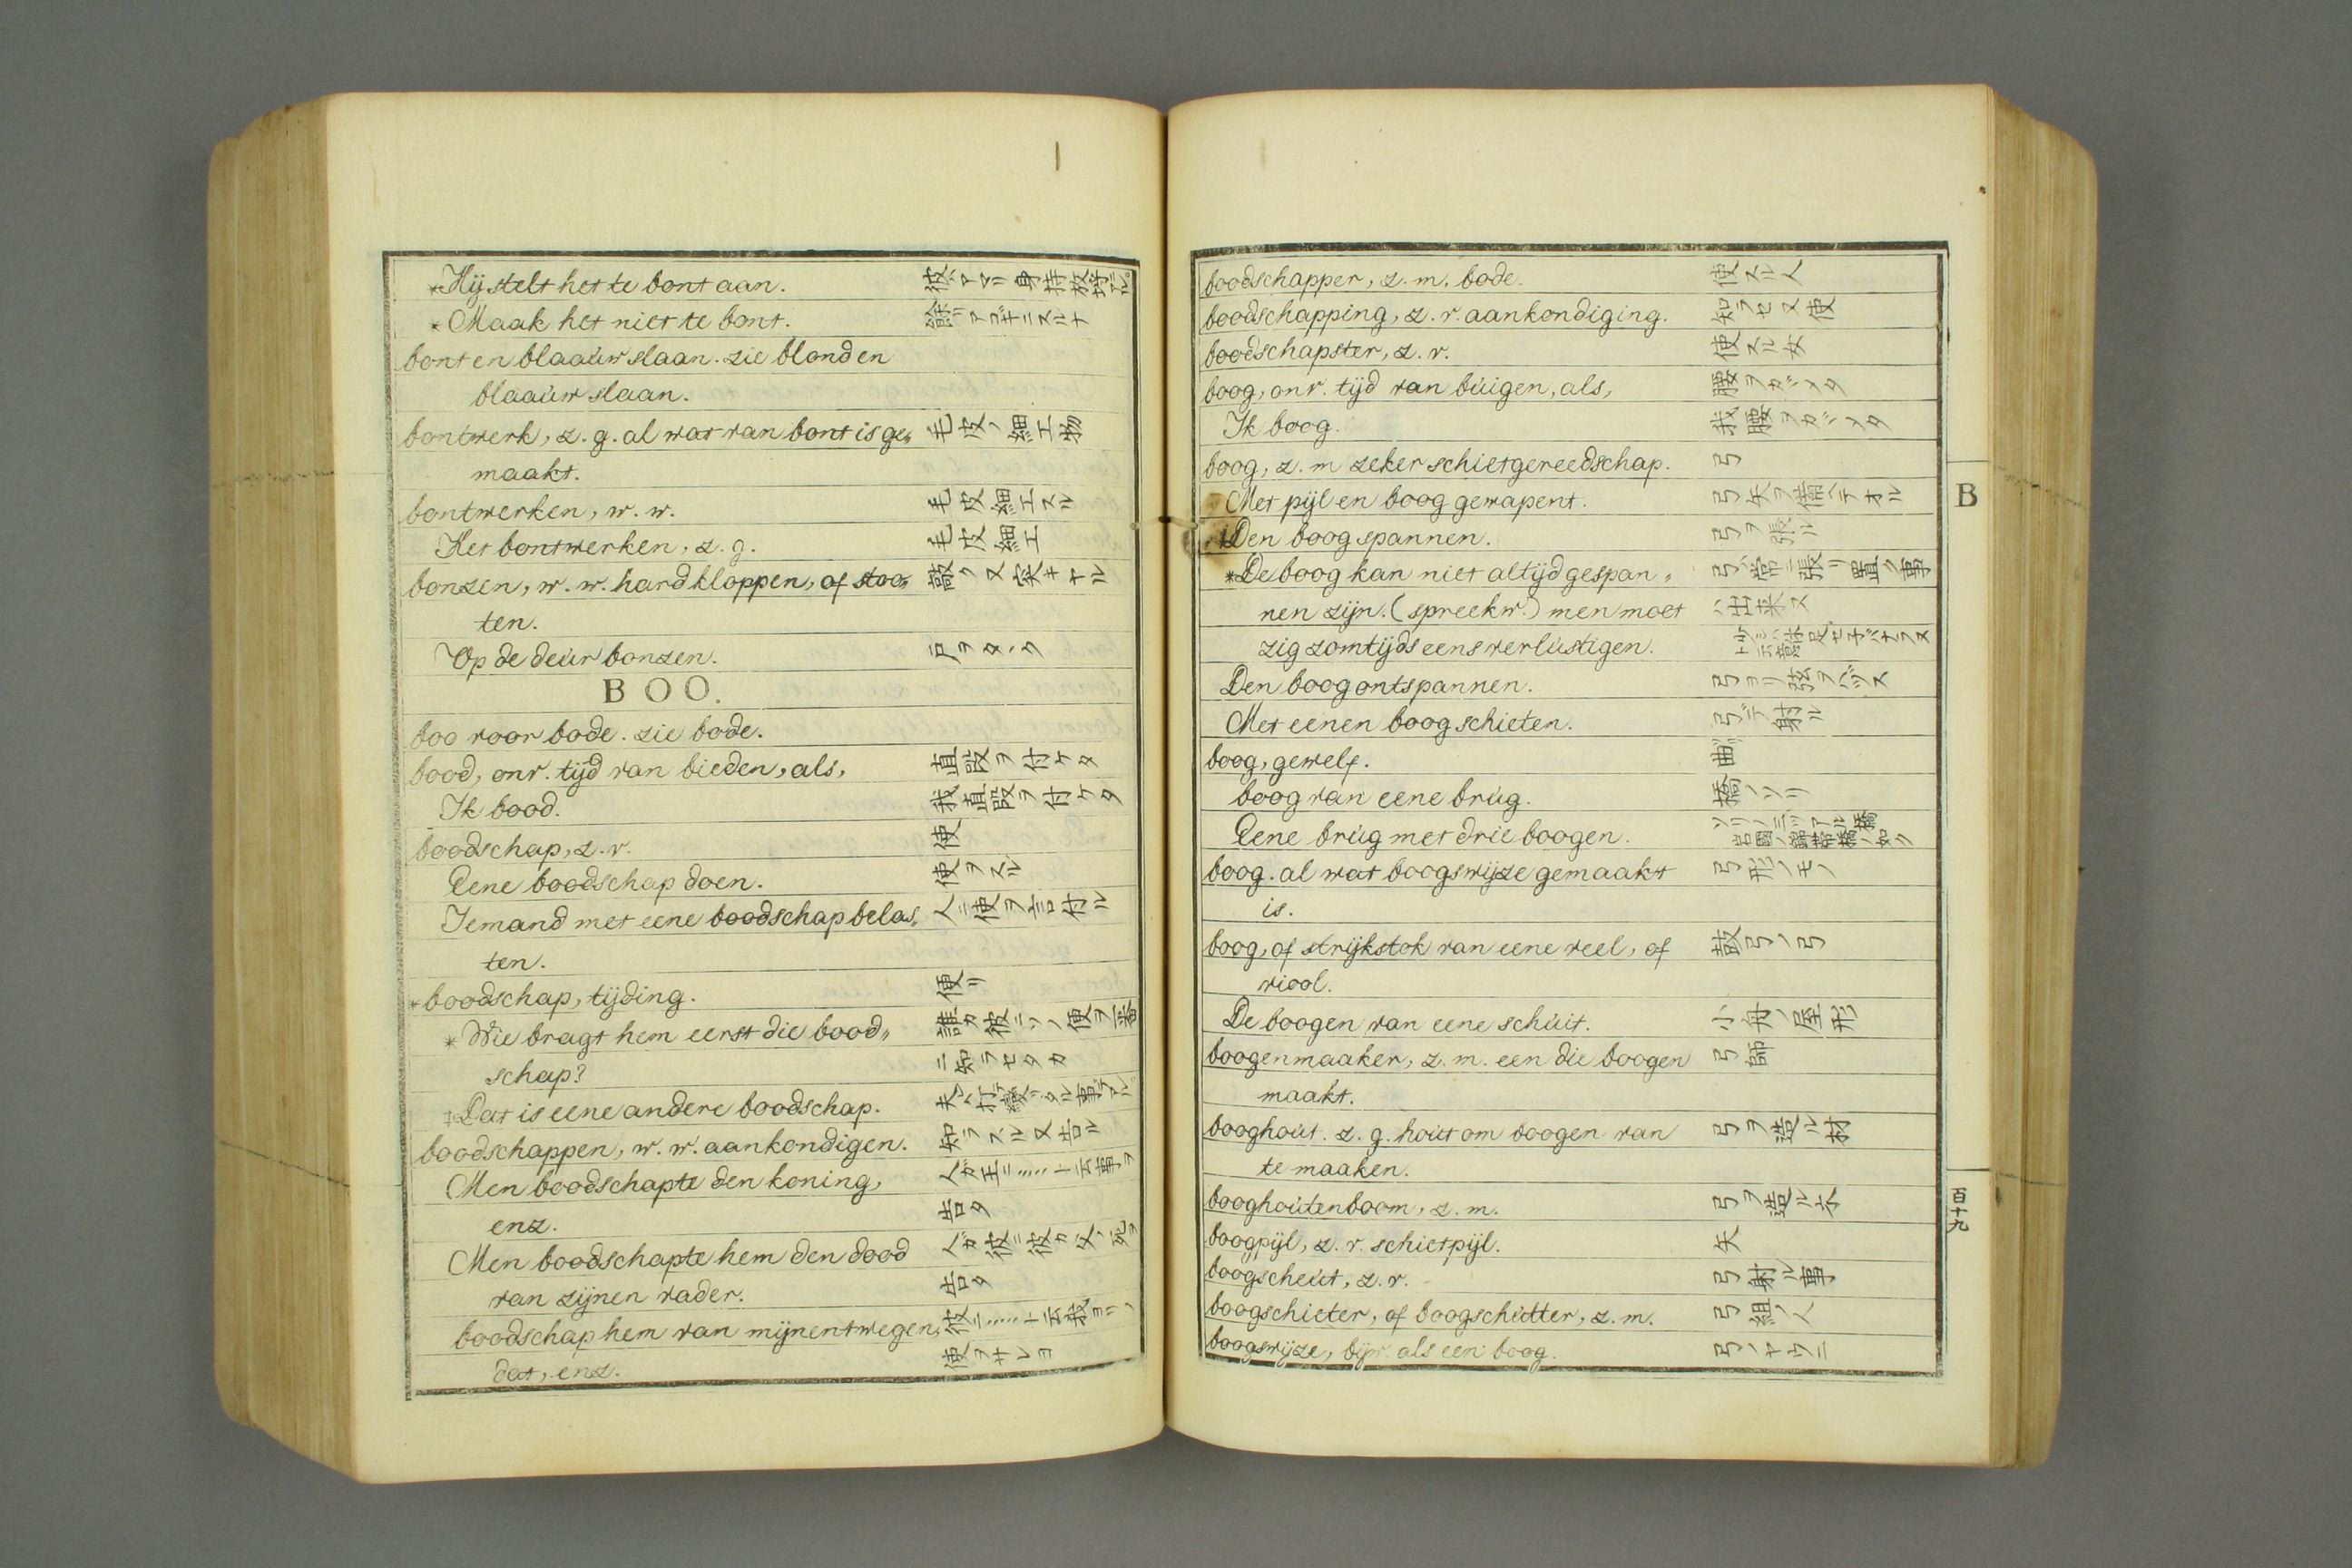 *Hij stelt het te bont aan. 彼ハアマリ身持放埒デアル。
*Maak het niet te bont. 餘リアコギニスルナ
bont en blaaúw slaan. zie blond en
blaaúw slaan.
bontwerk, z. g. al wat van bont is ge„ 毛皮ノ細工物
maakt.
bontwerken, w. w. 毛皮細工スル
Het bontwerken, z. g. 毛皮細工
bonzen, w. w. hard kloppen, of stoo„ 敲ク又突キヤル
ten.
Op de deúr bonzen. 戸ヲタヽク
BOO.
boo voor bode. zie bode.
bood, onv. tijd van bieden, als, 直段ヲ付ケタ
Ik bood. 我直段ヲ付ケタ
boodschap, z. v. 使
Eene boodschap doen. 使ヲスル
Iemand met eene boodschap belas„ 人ニ使ヲ言付ル
ten.
*boodschap, tijding. 便リ
*Wie bragt hem eerst die bood„ 誰カ彼ニソノ便ヲ一番
schap? ニ知ラセタカ
‡Dat is eene andere boodschap. 夫ハ打テ變ツタル事デアル。
boodschappen, w. w. aankondigen. 知ラスル又告ル
Men boodschapte den koning, 人ガ王ニ……ト云事ヲ
enz. 告タ
Men boodschapte hem den dood 人ガ彼ニ彼カ父ノ死ヲ
van zijnen vader. 告タ
boodschap hem van mijnentwegen, 彼ニ……ト云我ヨリノ
dat, enz. 使ヲサレヨ
boodschapper, z. m. bode. 使スル人
boodschapping, z. v. aankondiging. 知ラセ又使
boodschapster, z. v. 使スル女
boog, onv. tijd van búigen, als, 腰ヲカヾメタ
Ik boog. 我腰ヲカヾメタ
boog, z. m zeker schietgereedschap. 弓
Met pijl en boog gewapent. 弓矢ヲ備ヘテオル
‡Den boog spannen. 弓ヲ張ル
*De boog kan niet altijd gespan„ 弓ハ常ニ張リ置ク事
nen zijn. (spreekw.) men moet ハ出来ヌ
zig zomtijds eens verlústigen.
Den boog ontspannen. 弓ヨリ弦ヲハヅス
Met eenen boog schieten. 弓デ射ル
boog, gewelf. 曲リ
boog van eene brúg. 橋ノソリ
Eene brúg met drie boogen. ソリノ三ツアル橋
岩國ノ錦帯橋ノ如ク
boog. al wat boogswijze gemaakt 弓形ノモノ
is.
boog, of strijkstok van eene veel, of 鼓弓ノ弓
viool.
De boogen van eene schúit. 小舟ノ屋形
boogenmaaker, z. m. een die boogen 弓師
maakt.
booghoút. z. g. hoút om boogen van 弓ヲ造ル材
te maaken.
booghoútenboom, z. m. 弓ヲ造ル木
boogpijl, z. v. schietpijl. 矢
boogscheút, z. v. 弓射ル事
boogschieter, of boogschútter, z. m. 弓組ノ人
boogswijze, bijw. als een boog. 弓ノヤウニ
B
百十九